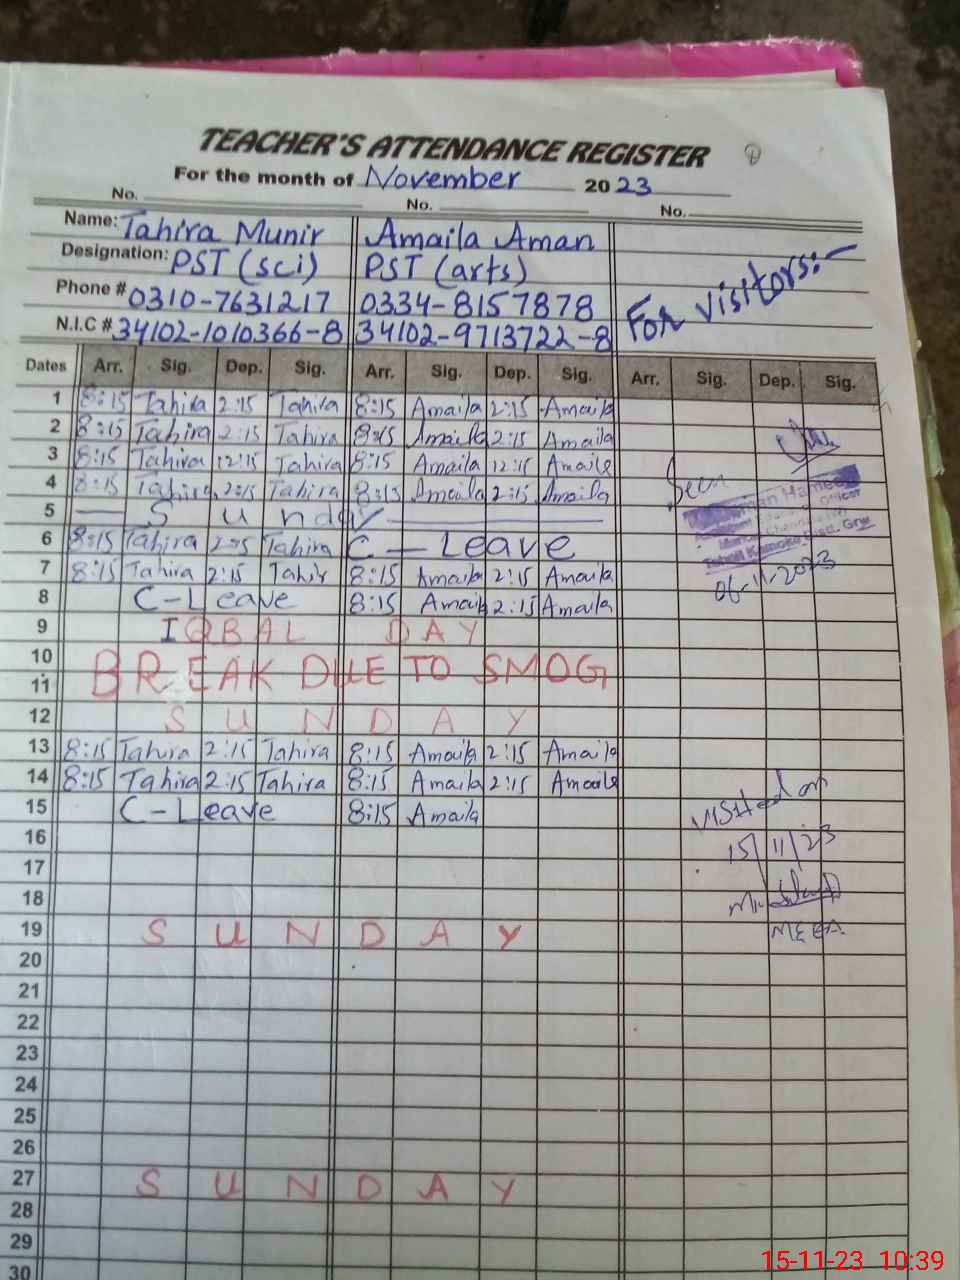 TEACHER'S ATTENDANCE REGISTER
For the month of November 2023
No. No. No.
Name: Tahira Munir Amaila Aman
Designation: PST (sci) PST (arts)
For visitors:-
Phone # 0310-7631217 0334-8157878
N.I.C # 34102-1010366-8 34102-9713722-8
Dates Arr. Sig. Dep. Sig. Arr. Sig. Dep. Sig. Arr. Sig. Dep. Sig.
1 8:15 Tahira 2:15 Tahira 8:15 Amaila 2:15 Amaila
2 8:15 Tahira 2:15 Tahira 8:15 Amaila 2:15 Amaila
3 8:15 Tahira 12:15 Tahira 8:15 Amaila 12:15 Amaila
4 8:15 Tahira 2:15 Tahira 8:15 Amaila 2:15 Amaila Seen
5 Sunday
6 8:15 Tahira 2:15 Tahira C-Leave
7 8:15 Tahira 2:15 Tahir 8:15 Amaila 2:15 Amaila 06-11-2023
8 C-Leave 8:15 Amaila 2:15 Amaila
9 IQBAL DAY
10 BREAK DUE TO SMOG
11
12 SUNDAY
13 8:15 Tahira 2:15 Tahira 8:15 Amaila 2:15 Amaila
14 8:15 Tahira 2:15 Tahira 8:15 Amaila 2:15 Amaila
15 C-Leave 8:15 Amaila Visited on
16 15/11/23
17
18
19 SUNDAY MEEA
20
21
22
23
24
25
26
27 SUNDAY
28
29
30
15-11-23 10:39